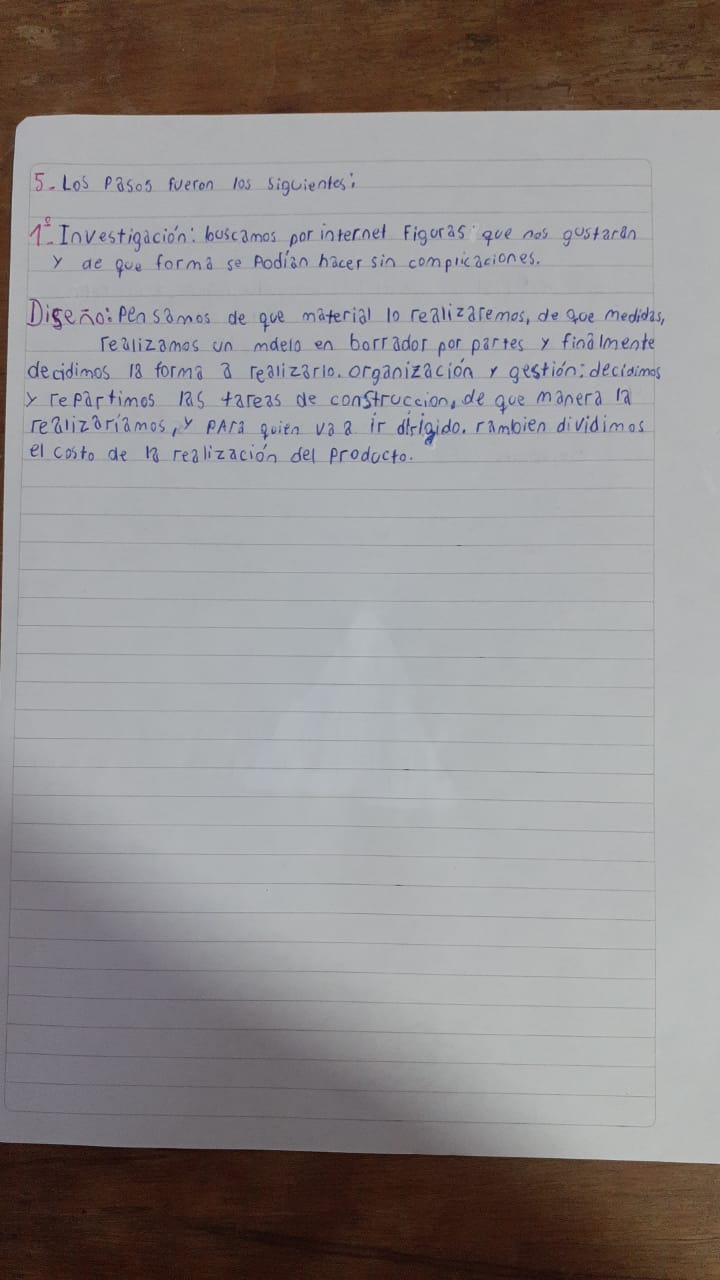 5- Los Pasos fueron los siguientes:
1º- Investigación: buscamos por internet figuras que nos gustaran
y de que forma se Podian hacer sin complicaciones.
Diseño: Pensamos de que material lo realizaremos, de que medidas,
realizamos un mdelo en borrador por partes y finalmente
decidimos la forma a realizarlo. organización y gestión: decidimos
y repartimos las tareas de construccion, de que manera la
realizaríamos, y PARA quien va a ir dirigido. Tambien dividimos
el costo de la realización del Producto.